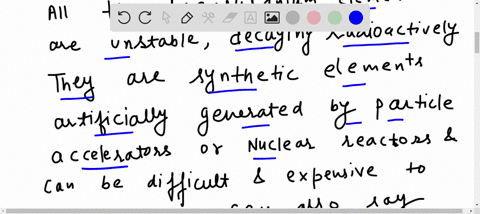 All
are unstable, decaying radioactively
They are synthetic elements
artificially generated by particle
accelerators or Nuclear reactors &
can be difficult & expensive to
also say